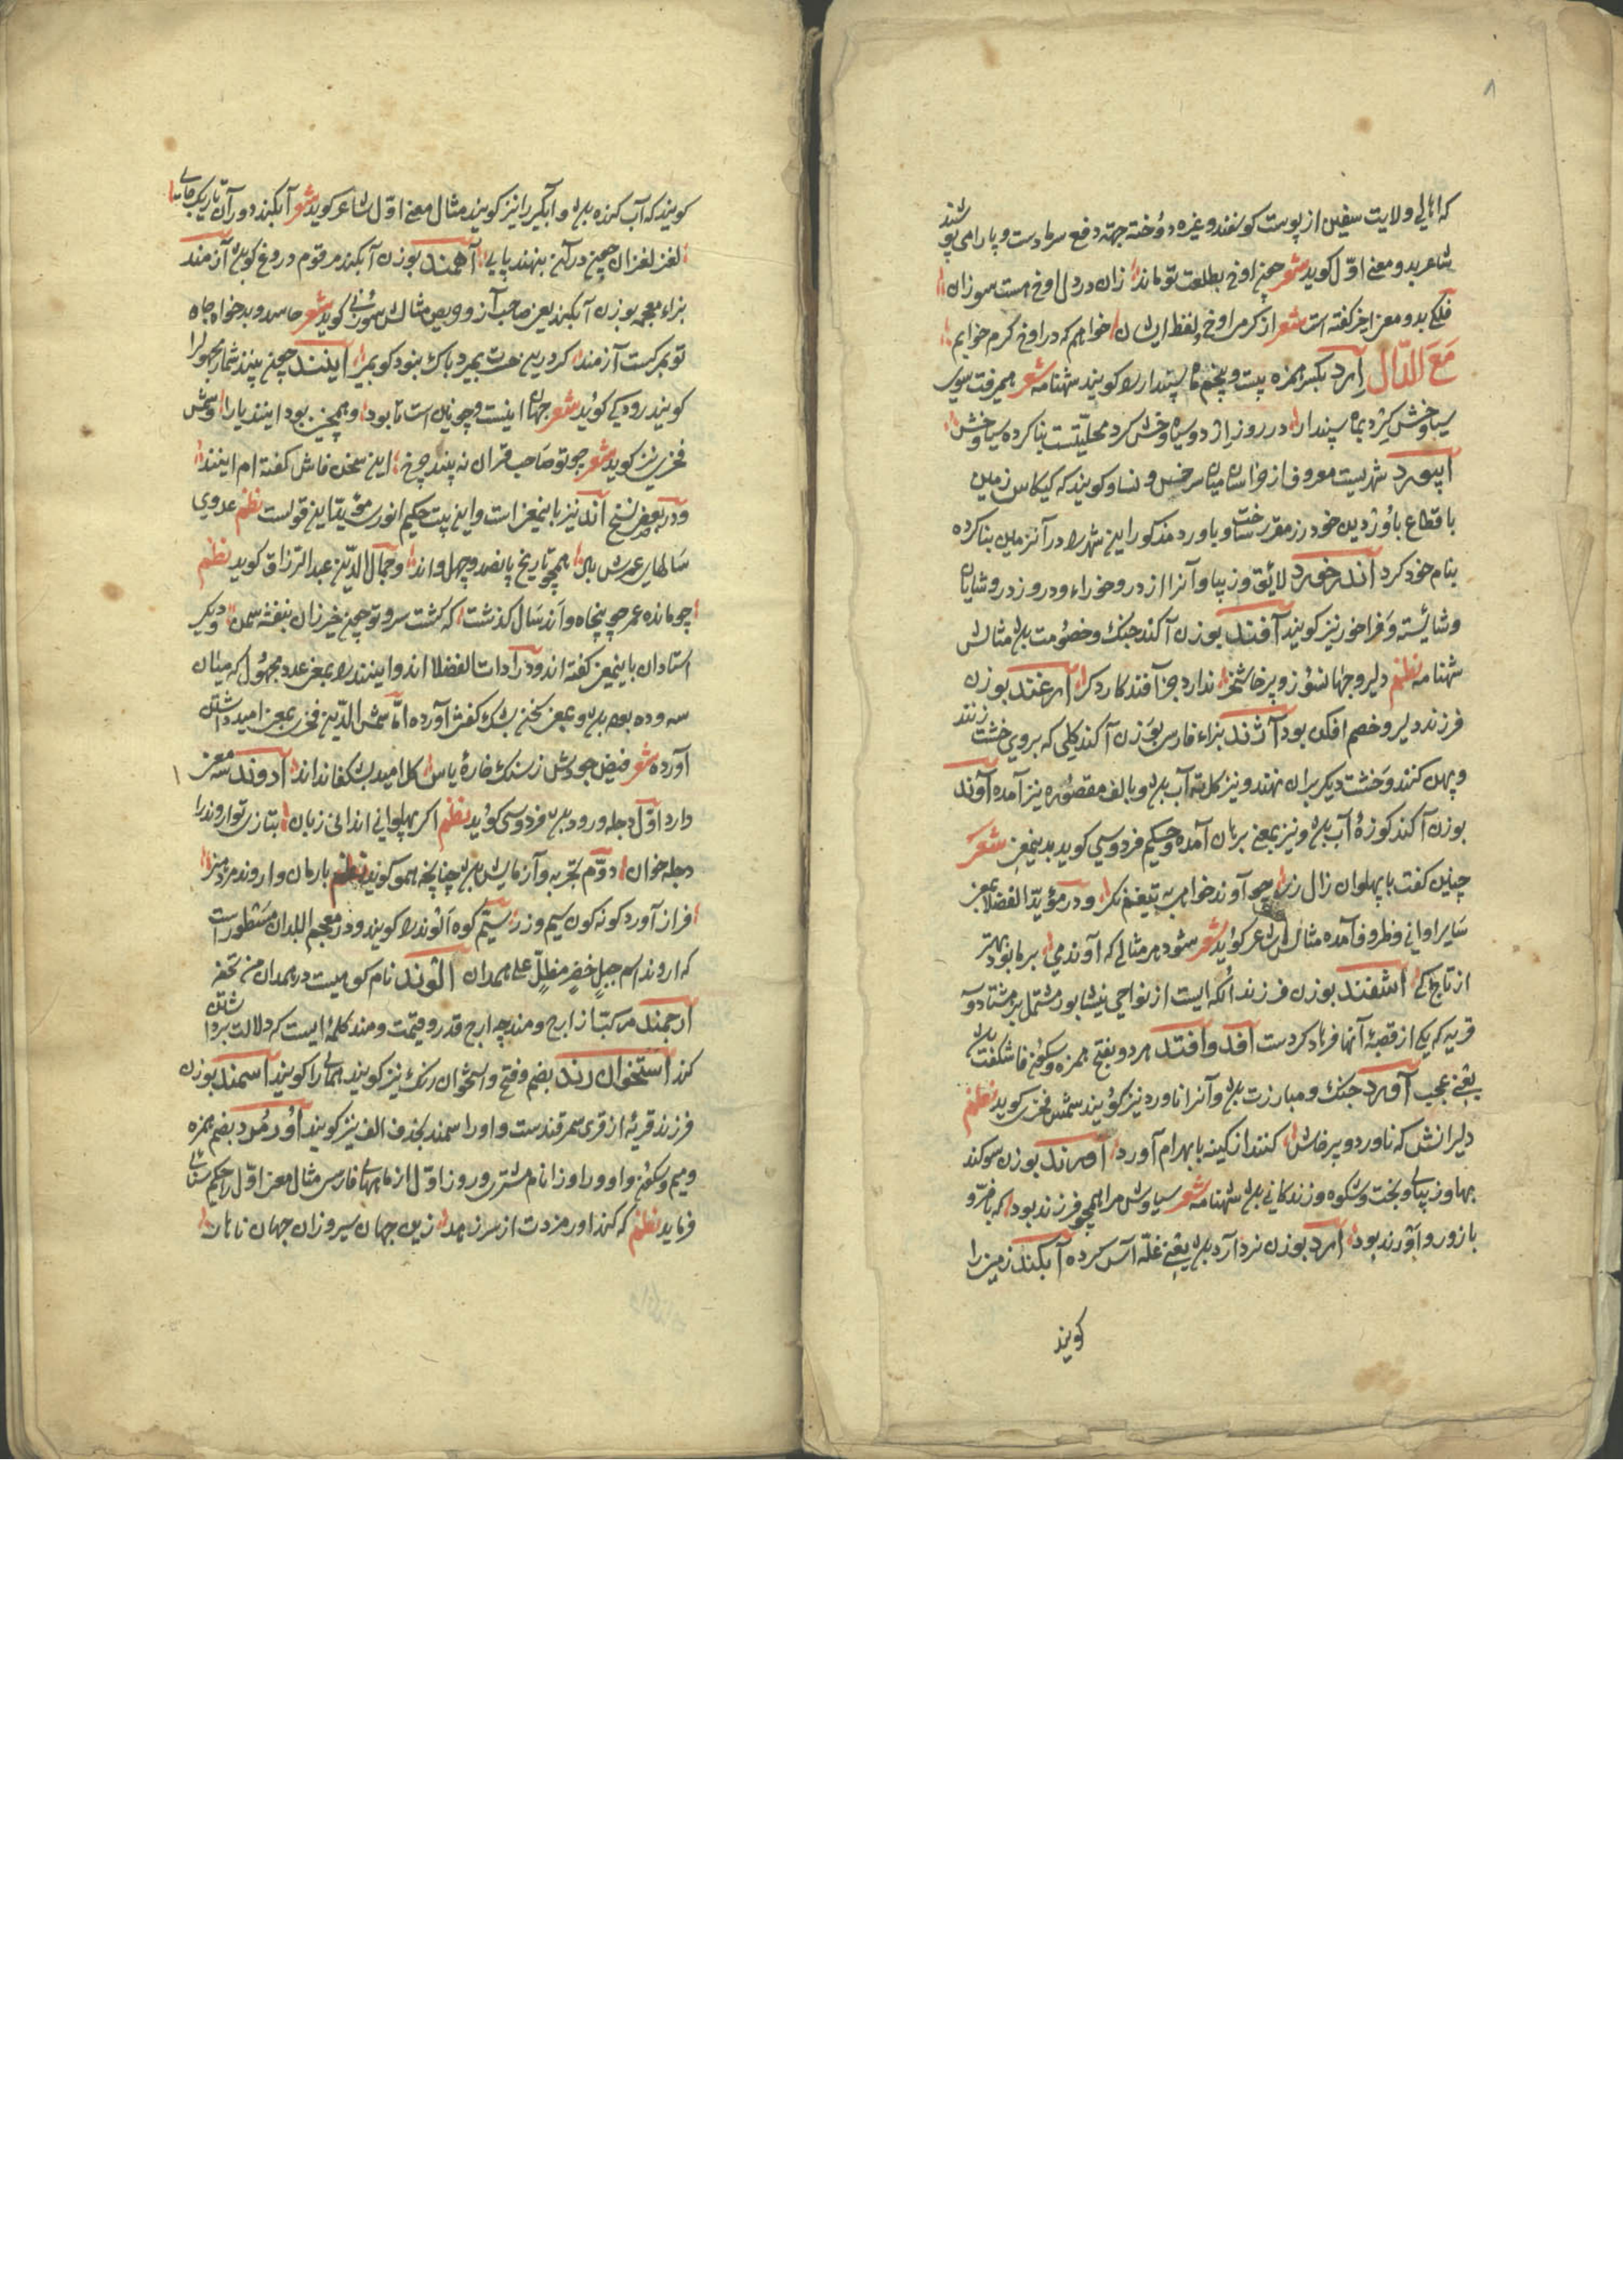 ۸
که اهالی ولایت سفین از پوست کوسفند و غیره دوخته جهة دفع سرما دست و پا را می پوشند
شاعر بدو معنی اوّل کوید شعر چنین اوخ بطلعت تو ماند زان در دل اوخ هست سوزان
فلکی بدو معنی اخیر کفته است شعر از کرم اوخ لفظ ایشان خواهم که در اوخ کرم خوابم
مَعَ الدّال ارد بکسر همزه بیست و پنجم ماه کویند شهنامه شعر همیرفت سوی
سیاوخش کرد بماه سپندار در روز ارد و سیاه وخش کرد محلیتست بنا کرده سیاوخش
ابیورد شهریست معروف از خراسان میان سرخس و نسا و کویند که کیکاس زمین
باقطاع باورد بن خودرز مقرر ساخت و باورد مذکور این شهر را در آنزمین بنا کرده
بنام خود کرد اندرخورد لایق و زیبا و آنرا از در و خوراء و در و زدر و شایان
و شائسته و فراخور نیز کویند آفند بوزن آکند جنک و خصومت باشد مثالش
شهنامه نظم دلیر و جهانسوز و پرخاشخر ندارد جز آفند کار دکر ارغند بوزن
فرزند دلیر و خصم افکن بود آژند بزاء فارسی بوزن آکند کلی که بروی خشت زنند
و پهن کنند و خشت دیکر بران نهند و نیز کل ته آب باشد و بالف مقصوره نیز آمده آوند
بوزن آکند کوزهٔ آب باشد و نیز بمعنی برهان آمده و حکیم فردوسی کوید بدینمعنی شعر
چنین کفت با پهلوان زال زر چو آوند خواهی بتیغم نکر و در مؤیّد الفضلا بمعنی
سایر اوانی و ظروف آمده مثالش شاعر کوید شعر شود هر مثالی که آوند می بر ما بود بهتر
از تاج کی اشفند بوزن فرزند الکه ایست از نواحی نیشابور مشتمل بر هشتاد و سه
قریه که یکی از قصبهٔ آنها فرهاد کردست افد و افتد هر دو بفتح همزه و سکون فا شکفت باشد
یعنی عجیب آورد جنک و مبارزت باشد و آنرا ناورد نیز کویند شمس فخری کوید نظم
دلیرانش که ناورد و پرخاش کنند از کینه با بهرام آورد اورند بوزن سوکند
بها و زیبائی و بخت و شکوه و زندکانی باشد شهنامه شعر سیاوش مرا همچو فرزند بود که با فرّ و
با زور و اورند بود ارد بوزن نرد آرد باشد یعنی غلّه آس کرده آبکند زمین را
کویند
کویند که آب کنده باشد و آبکیر را نیز کویند مثال معنی اوّل شاعر کوید شعر آبکند دور آن تاریک جای
لغز لغزان چنین درآن بنهند پای آهمند بوزن آبکند مرقوم دروغ کوی باشد آزمند
بزاء معجمه بوزن آبکند یعنی صاحب آز و حریص مثالش سوزنی کوید شعر حاسد و بدخواه جاه
تو بمرکست آزمند کر دریی حسرت بمیرد باک نبود کو بمیر ایفند چنین پنند شمار مجهول را
کویند رودکی کوید شعر جهان اینست و چونین است تا بود و همچنین بود اینند یارا و شمس
فخری نیز کوید شعر چو تو صاحب قران نه پیند چرخ این سخن فاش کفته ام اینند
و در بعضی نسخ آند نیز باینمعنی است و این بیت حکیم انوری مؤید این قولست نظم عدوی
سالهای عمرش باد همچو تاریخ پانصد و چهل و اند و جمال الدّین عبدالرزاق کوید نظم
چو مانده عمر چو پنجاه و اند سال کذشت که کشت سرو تو چون خیزران بنفشه سمن و دیکر
استادان باینمعنی کفته اند و در ادات الفضلا اند و اینند را بمعنی عدد مجهول که میان
سه و ده بود باشد و بمعنی سخن بشک کفتن آورده امّا شمس الدّین فخری بمعنی امید داشتن
آورده شعر فیض جودش ز سنک خارهٔ یاس کل امید بشکفاند اند اروند سه معنی
دارد اوّل دجله و رود باشد فردوسی کوید نظم اکر پهلوانی ندانی زبان بتازی تو اروند را
دجله خوان دوّم تجربه و آزمایش باشد چنانچه هم او کوید نظم بارمان و اروند مرد هنر
فراز آورد کونه کون سیم و زر سیّم کوه الوند را کویند و در معجم البلدان مسطور است
که اروند اسم جبل خضر مطلّ علی همدان الوند نام کوهیست در همدان من تحفه
ارجمند مرکبست از ارج و مند چه ارج قدر و قیمت و مند کلمهٔ ایست که دلالت بر داشتن
کند استخوان رند بضم و فتح و استخوان رنک نیز کویند همای را کویند اسمند بوزن
فرزند قریهٔ از قری سمرقندست و او را سمند بحذف الف نیز کویند اورمزد بضم همزه
و میم و سکون واو و را و زا نام مشتری و روز اوّل از ماههای فارسی مثال معنی اوّل را حکیم سنائی
فرماید نظم که کند اورمزدت از سر زهد زین جهان سیر و زان جهان ناهار